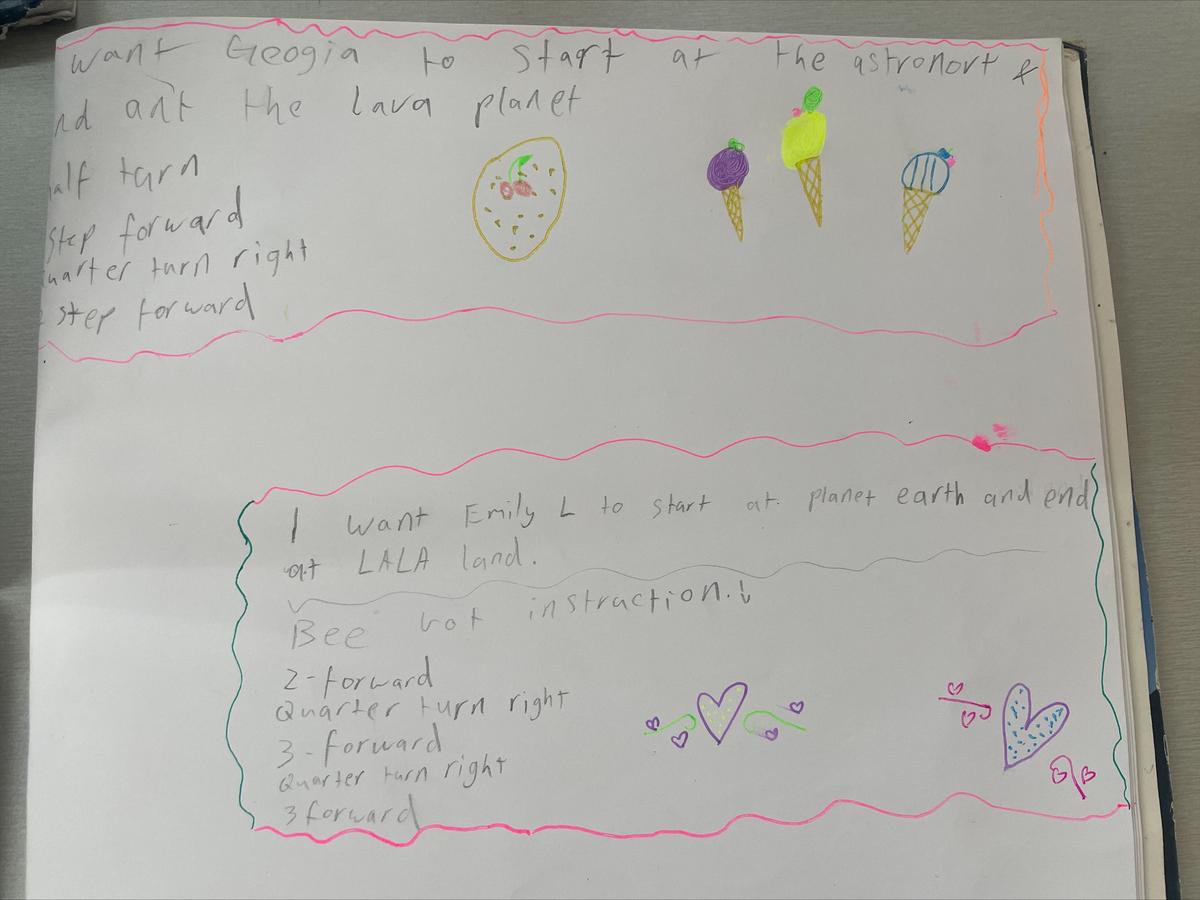 want Geogia to start at the astronort &
nd ant the lava planet
alf turn
step forward
uarter turn right
step forward
I want Emily L to start at planet earth and end
at LALA land.
Bee bot instraction.↓
2-forward
Quarter turn right
3-forward
Quarter turn right
3 forward